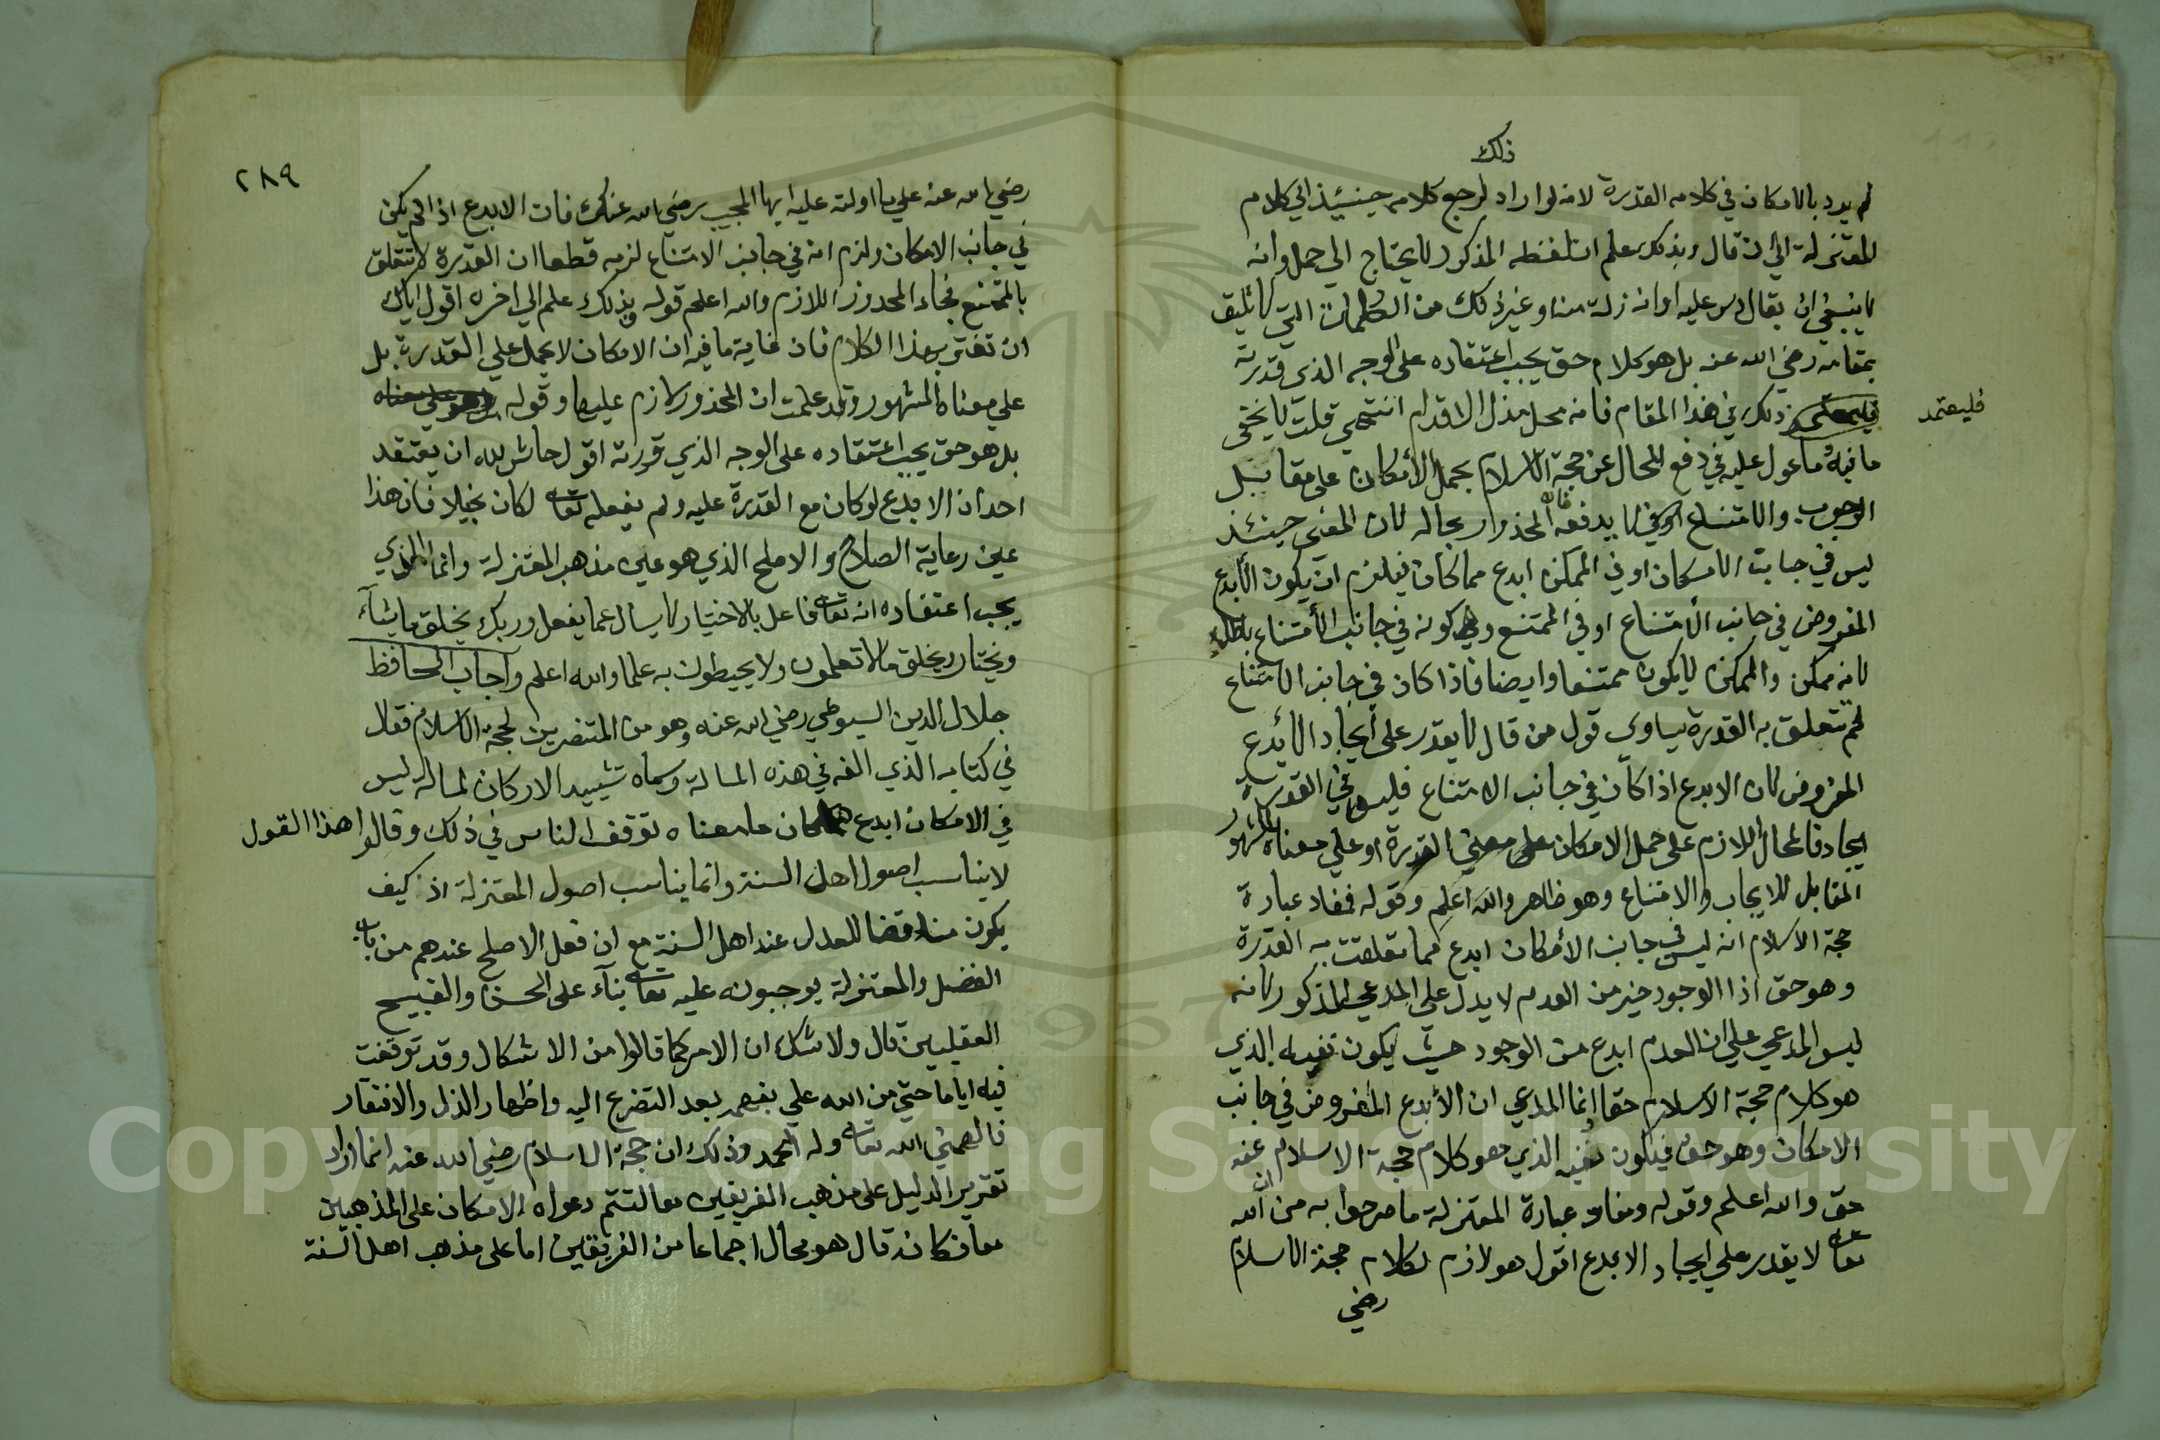 ذلك
لم يرد بالامكان في كلامه القدرة لانه لو اراد لرجع كلامه حينئيذ الي كلام
المعتزلة الي ان قال وبذلك علم ان لفظه المذكور لا يحتاج الي حمل وانه
لا ينبغي ان يقال دس عليه او انه زلة منه او غير ذلك من الكلمات التي لا تليق
بمقامه رضي الله عنه بل هو كلام حق يجب اعتقاده على الوجه الذي قدرته
فليعتمد
ذلك في هذا المقام فانه محل مذل الاقدام انتهي قلت لا يخفى
ما فيه وما عول عليه في دفع المحال عن حجة الاسلام بحمل الامكان على مقابل
الوجوب والامتناع لا يدفعه فان المحذور بحاله لان المعني حينئذ
ليس في جانب الامكان او في الممكن ابدع مما كان فيلزم ان يكون الابدع
المفروض في جانب الامتناع او في الممتنع وكونه في جانب الامتناع باطل
لانه ممكن والممكن لا يكون ممتنعا وايضا فاذا كان في جانب الامتناع
لم تتعلق به القدرة يساوي قول من قال لا يقدر على ايجاد الابدع
المفروض لان الابدع اذا كان في جانب الامتناع فليس في القدرة
ايجاده فالمحال اللازم على حمل الامكان على معني القدرة او علي معناه المشهور
المقابل للايجاب والامتناع وهو ظاهر والله اعلم وقوله فمفاد عبارة
حجة الاسلام انه ليس في جانب الامكان ابدع مما تعلقت به القدرة
وهو حق اذا الوجود خير من العدم لا يدل على المدعي المذكور لانه
ليس المدعي علي ان العدم ابدع من الوجود حيث يكون نفيه الذي
هو كلام حجة الاسلام حقا انما المدعي ان الابدع المفروض في جانب
الامكان وهو حق فيكون نفيه الذي هو كلام حجة الاسلام عنه
حق والله اعلم وقوله ومفاد عبارة المعتزلة ما صرحوا به من ان الله
تعالى لا يقدر علي ايجاد الابدع اقول هو لازم لكلام حجة الاسلام
رضي
٢٨٩
رضي الله عنه علي ما اولته عليه ايها المجيب رضي الله عنك فان الابدع اذا لم يكن
في جانب الامكان ولزم انه في جانب الامتناع لزمه قطعا ان القدرة لا تتعلق
بالممتنع فجاء المحذور اللازم والله اعلم قوله وبذلك علم الي اخره اقول اياك
ان تغتر بهذا الكلام فان غاية ما فيه ان الامكان لا يحمل علي القدرة بل
علي معناه المشهور وقد علمت ان المحذور لازم عليها وقوله
بل هو حق يجب اعتقاده على الوجه الذي قررته اقول حاش لله ان يعتقد
احد ان الابدع لو كان مع القدرة عليه ولم يفعله تعالى لكان بخيلا فان هذا
عين رعاية الصلاح والاصلح الذي هو عين مذهب المعتزلة وانما الذي
يجب اعتقاده انه تعالى فاعل بالاختيار لا يسال عما يفعل وربك يخلق ما يشآء
ويختار ويخلق مالا تعلمون ولا يحيطون به علما والله اعلم واجاب الحافظ
جلال الدين السيوطي رضي الله عنه وهو من المنتصرين لحجة الاسلام فقال
في كتابه الذي الفه في هذه المسالة وسماه تشييد الاركان لمسالة ليس
في الامكان ابدع مما كان ما معناه توقف الناس في ذلك وقالوا هذا القول
لا يناسب اصول اهل السنة وانما يناسب اصول المعتزلة اذ كيف
يكون مناقضا للعدل عند اهل السنة مع ان فعل الاصلح عندهم من باب
الفضل والمعتزلة يوجبونه عليه تعالى بنآء على الحسن والقبيح
العقليين قال ولا شك ان الامر كما قالوا من الاشكال وقد توقفت
فيه اياما حتي من الله علي بفهمه بعد التضرع اليه واظهار الذل والافتقار
فالهمني الله تعالى وله الحمد وذلك ان حجة الاسلام رضي الله عنه انما اراد
تقرير الدليل على مذهب الفريقين معا لتتم دعواه الامكان على المذهبين
معا فكانه قال هو محال اجماعا من الفريقين اما على مذهب اهل السنة